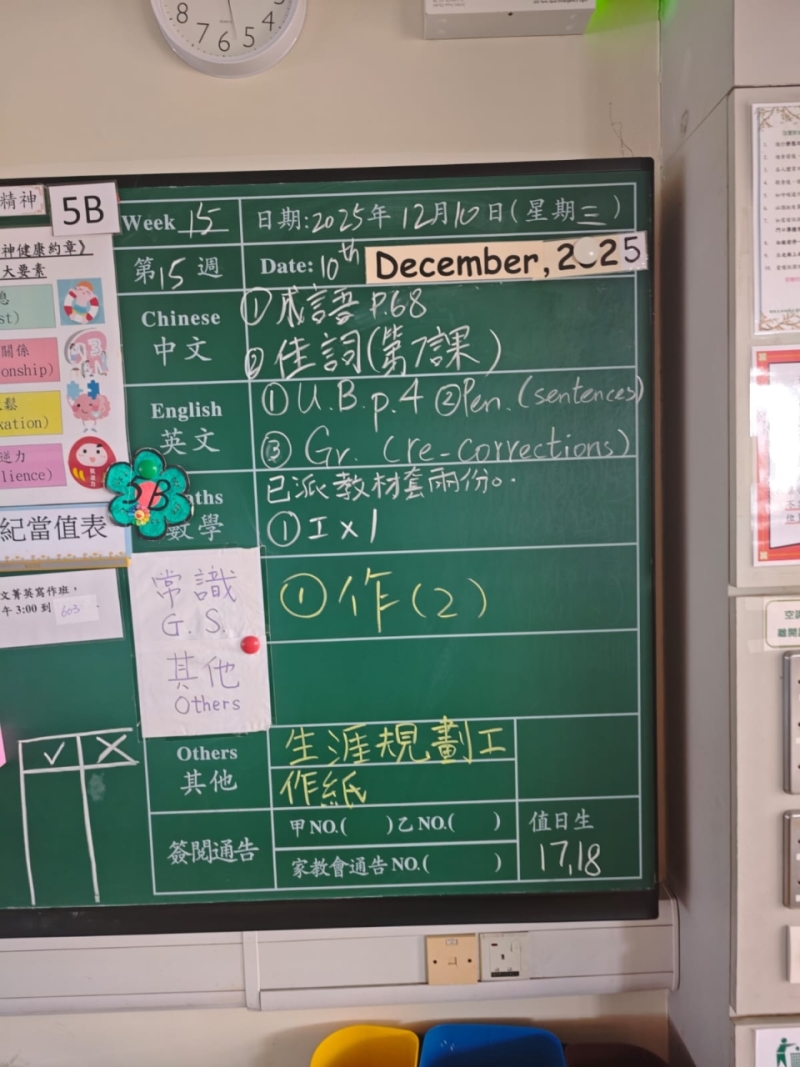 8 7 6 5 4
精神
5B
神健康約章》
大要素
息
st)
關係
onship)
鬆
xation)
逆力
lience)
5B
紀當值表
文菁英寫作班,
午 3:00 到 603
✓ ✗
Week 15 日期:2025年12月10日(星期三)
第15週 Date: 10th December, 2025
Chinese ①成語 P.68
中文 ②佳詞(第7課)
English ① U.B. p.4 ②Pen. (sentences)
英文 ③ Gr. (re-corrections)
aths 已派教材套兩份。
數學 ①工x1
常識 ①作(2)
G.S.
其他
Others
Others 生涯規劃工
其他 作紙
簽閱通告 甲NO.( )乙NO.( ) 值日生
家教會通告NO.( ) 17,18
空調
離開